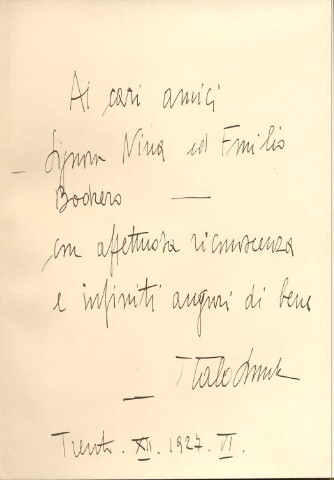 Ai cari amici
Signora Nina ed Emilio
con affettuosa riconoscenza
e infiniti auguri di bene
Italo
Trento. XII. 1927. VI.